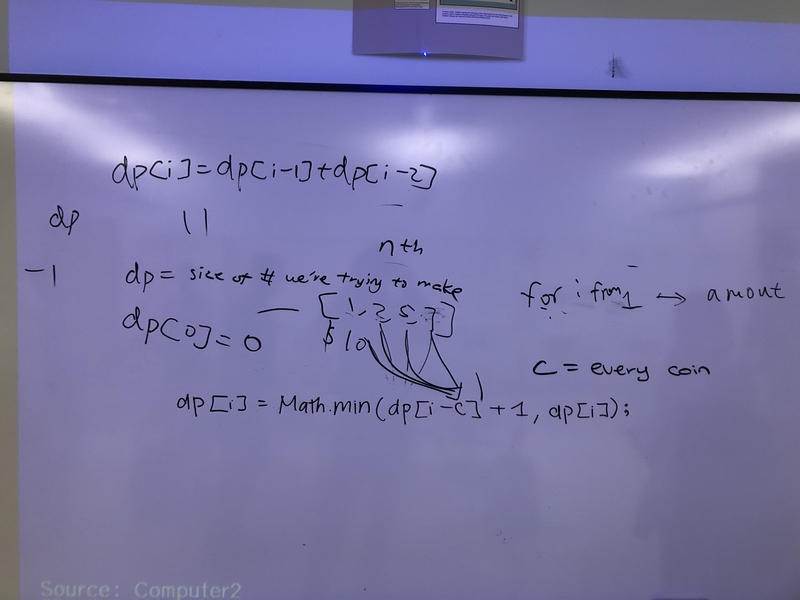 dp[i]=dp[i-1]+dp[i-2]
dp 11
nth
-1 dp= size of # we're trying to make
for i from 1 → amout
[1,2,5,7]
dp[0]=0 $10
c = every coin
dp[i] = Math.min(dp[i-c]+1, dp[i]);
Source: Computer2